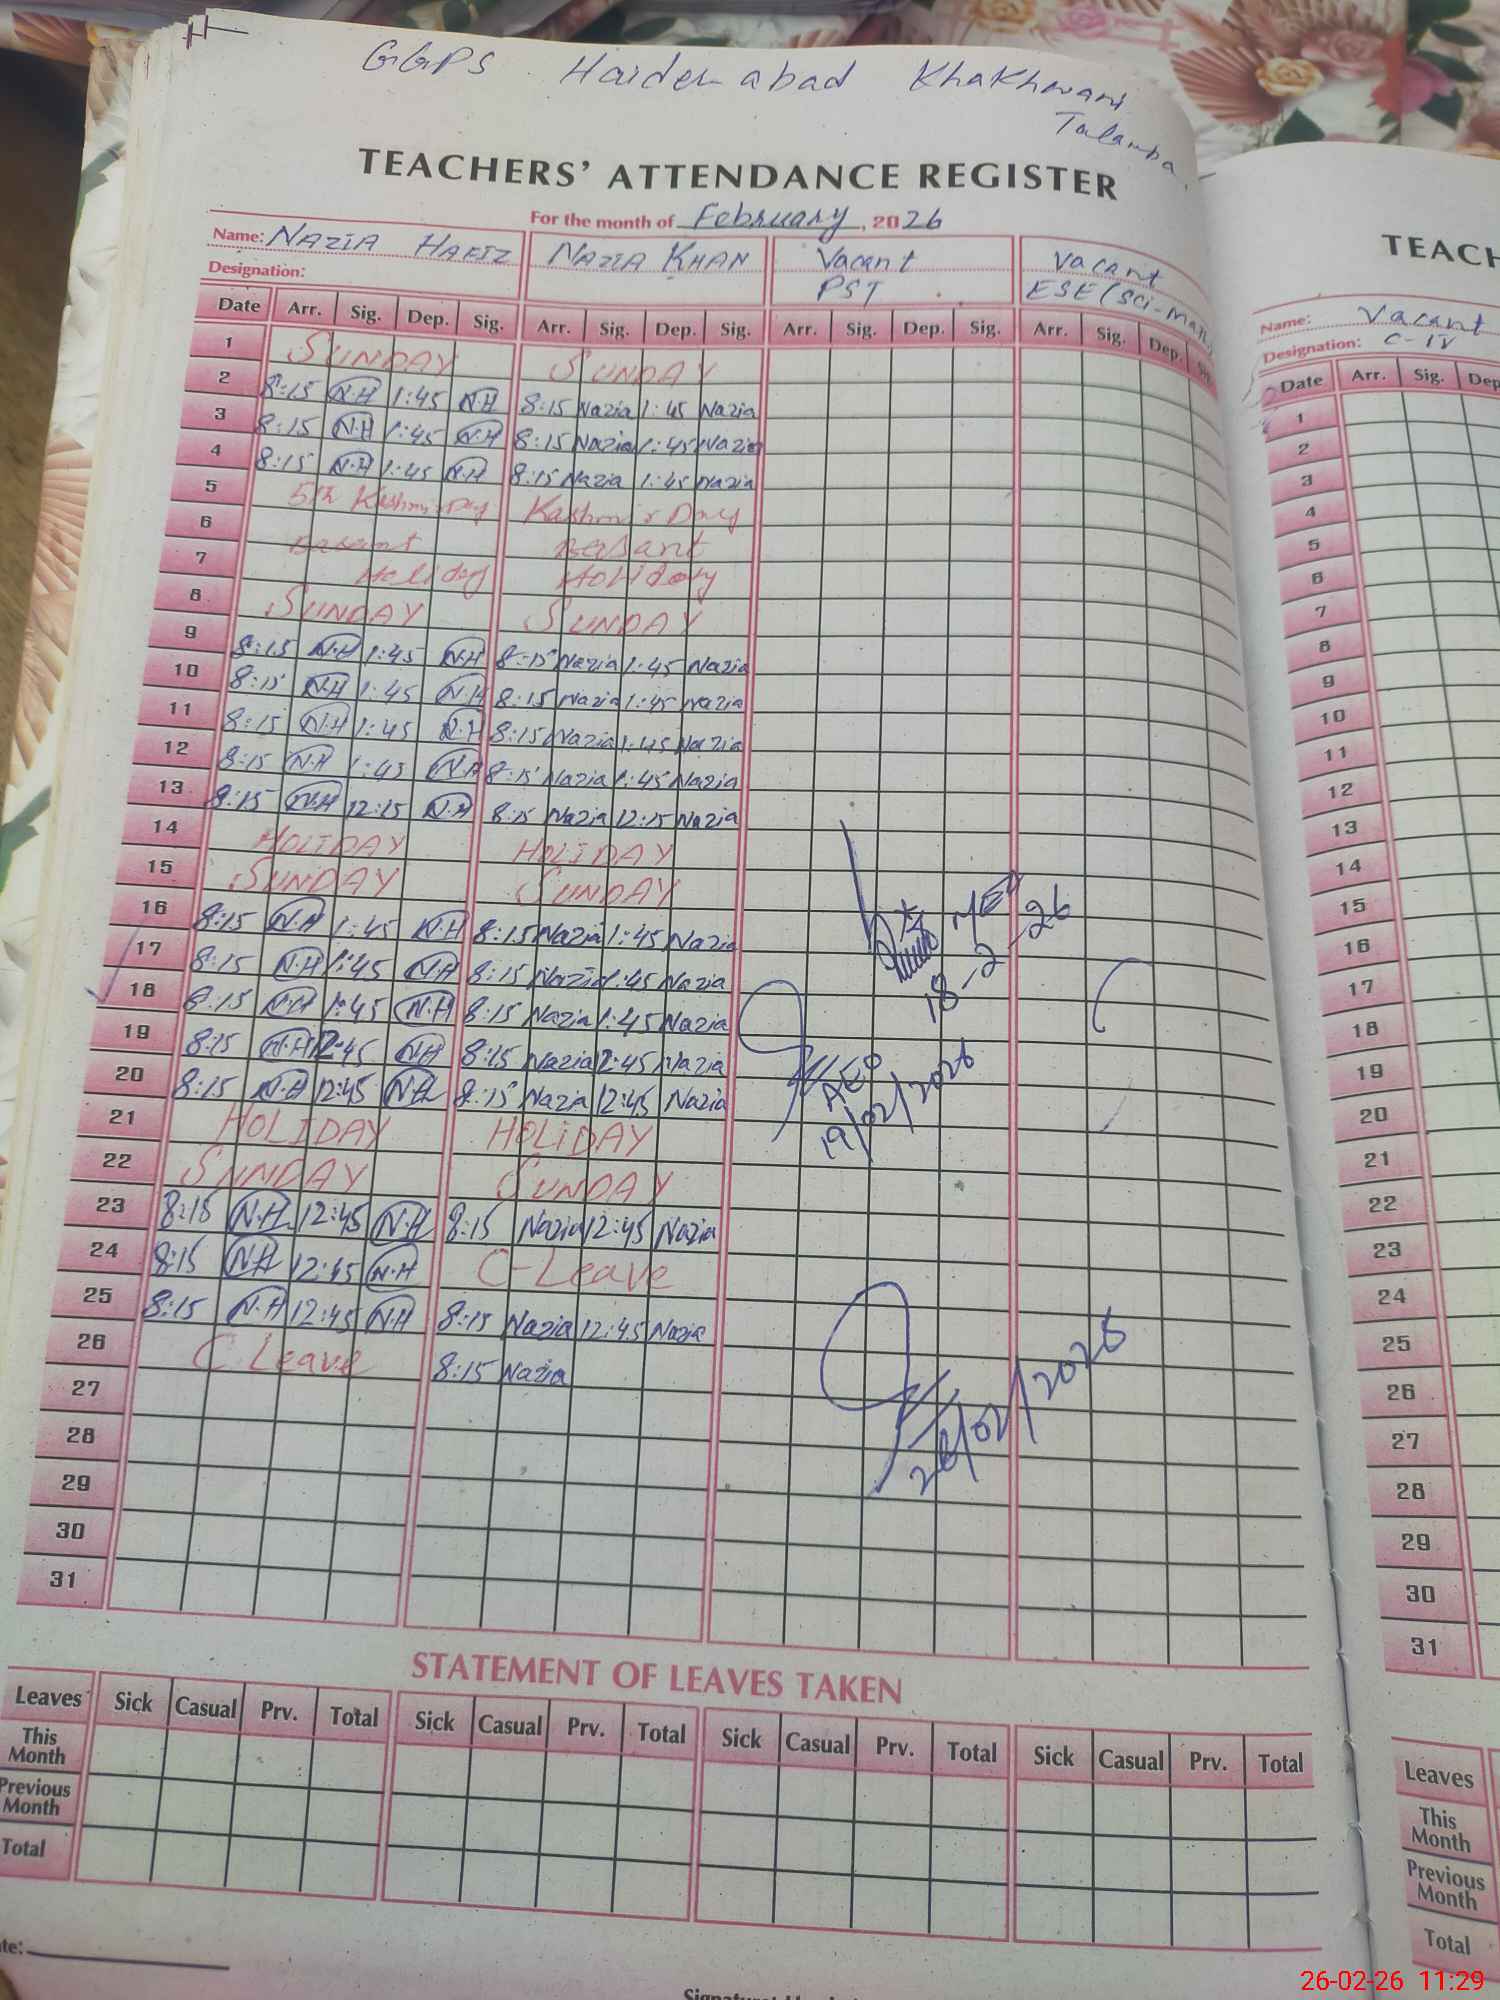 GGPS Haiderabad Khakhwani
Talamba
TEACHERS' ATTENDANCE REGISTER
For the month of February, 2026
Name: NAZIA HAFIZ NAZIA KHAN Vacant Vacant
Designation: PST ESE (Sci-Math)
Date Arr. Sig. Dep. Sig. Arr. Sig. Dep. Sig. Arr. Sig. Dep. Sig. Arr. Sig. Dep. Sig.
1 SUNDAY SUNDAY
2 8:15 N.H 1:45 N.H 8:15 Nazia 1:45 Nazia
3 8:15 N.H 1:45 N.H 8:15 Nazia 1:45 Nazia
4 8:15 N.H 1:45 N.H 8:15 Nazia 1:45 Nazia
5 5th Kashmir Day Kashmir Day
6 Basant Basant
7 Holiday Holiday
8 SUNDAY SUNDAY
9 8:15 N.H 1:45 N.H 8:15 Nazia 1:45 Nazia
10 8:15 N.H 1:45 N.H 8:15 Nazia 1:45 Nazia
11 8:15 N.H 1:45 N.H 8:15 Nazia 1:45 Nazia
12 8:15 N.H 1:45 N.H 8:15 Nazia 1:45 Nazia
13 8:15 N.H 12:15 N.H 8:15 Nazia 12:15 Nazia
14 HOLIDAY HOLIDAY
15 SUNDAY SUNDAY
16 8:15 N.H 1:45 N.H 8:15 Nazia 1:45 Nazia
17 8:15 N.H 1:45 N.H 8:15 Nazia 1:45 Nazia
18 8:15 N.H 1:45 N.H 8:15 Nazia 1:45 Nazia
19 8:15 N.H 12:45 N.H 8:15 Nazia 12:45 Nazia
20 8:15 N.H 12:45 N.H 8:15 Nazia 12:45 Nazia
21 HOLIDAY HOLIDAY
22 SUNDAY SUNDAY
23 8:15 N.H 12:45 N.H 8:15 Nazia 12:45 Nazia
24 8:15 N.H 12:45 N.H C-Leave
25 8:15 N.H 12:45 N.H 8:15 Nazia 12:45 Nazia
26 C Leave 8:15 Nazia
27
28
29
30
31
MEA
18-2-26
AEO
19/02/2026
26/02/2026
STATEMENT OF LEAVES TAKEN
Leaves Sick Casual Prv. Total Sick Casual Prv. Total Sick Casual Prv. Total Sick Casual Prv. Total
This Month
Previous Month
Total
TEACH
Name: Vacant
Designation: C-IV
Date Arr. Sig. Dep
1
2
3
4
5
6
7
8
9
10
11
12
13
14
15
16
17
18
19
20
21
22
23
24
25
26
27
28
29
30
31
Leaves
This Month
Previous Month
Total
26-02-26 11:29